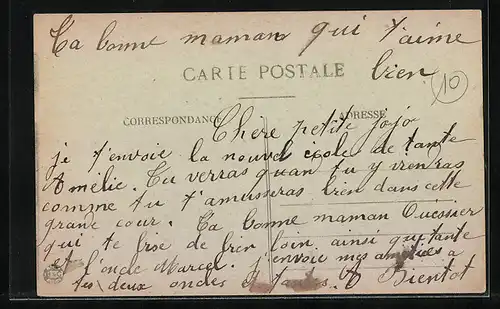 Ta bonne maman qui t'aime
bien
10
CARTE POSTALE
CORRESPONDANCE
ADRESSE
Chere petite jojo
je t'envoie la nouvel école de tante
Amélie. Tu verras quan tu y vienras
comme tu t'amuseras bien dans cette
grande cour. Ta bonne maman
qui te bise de bien loin ainsi qu tante
et l'oncle Marcel. j'envoie mes amitiés a
tes deux oncles et tantes. A Bientot